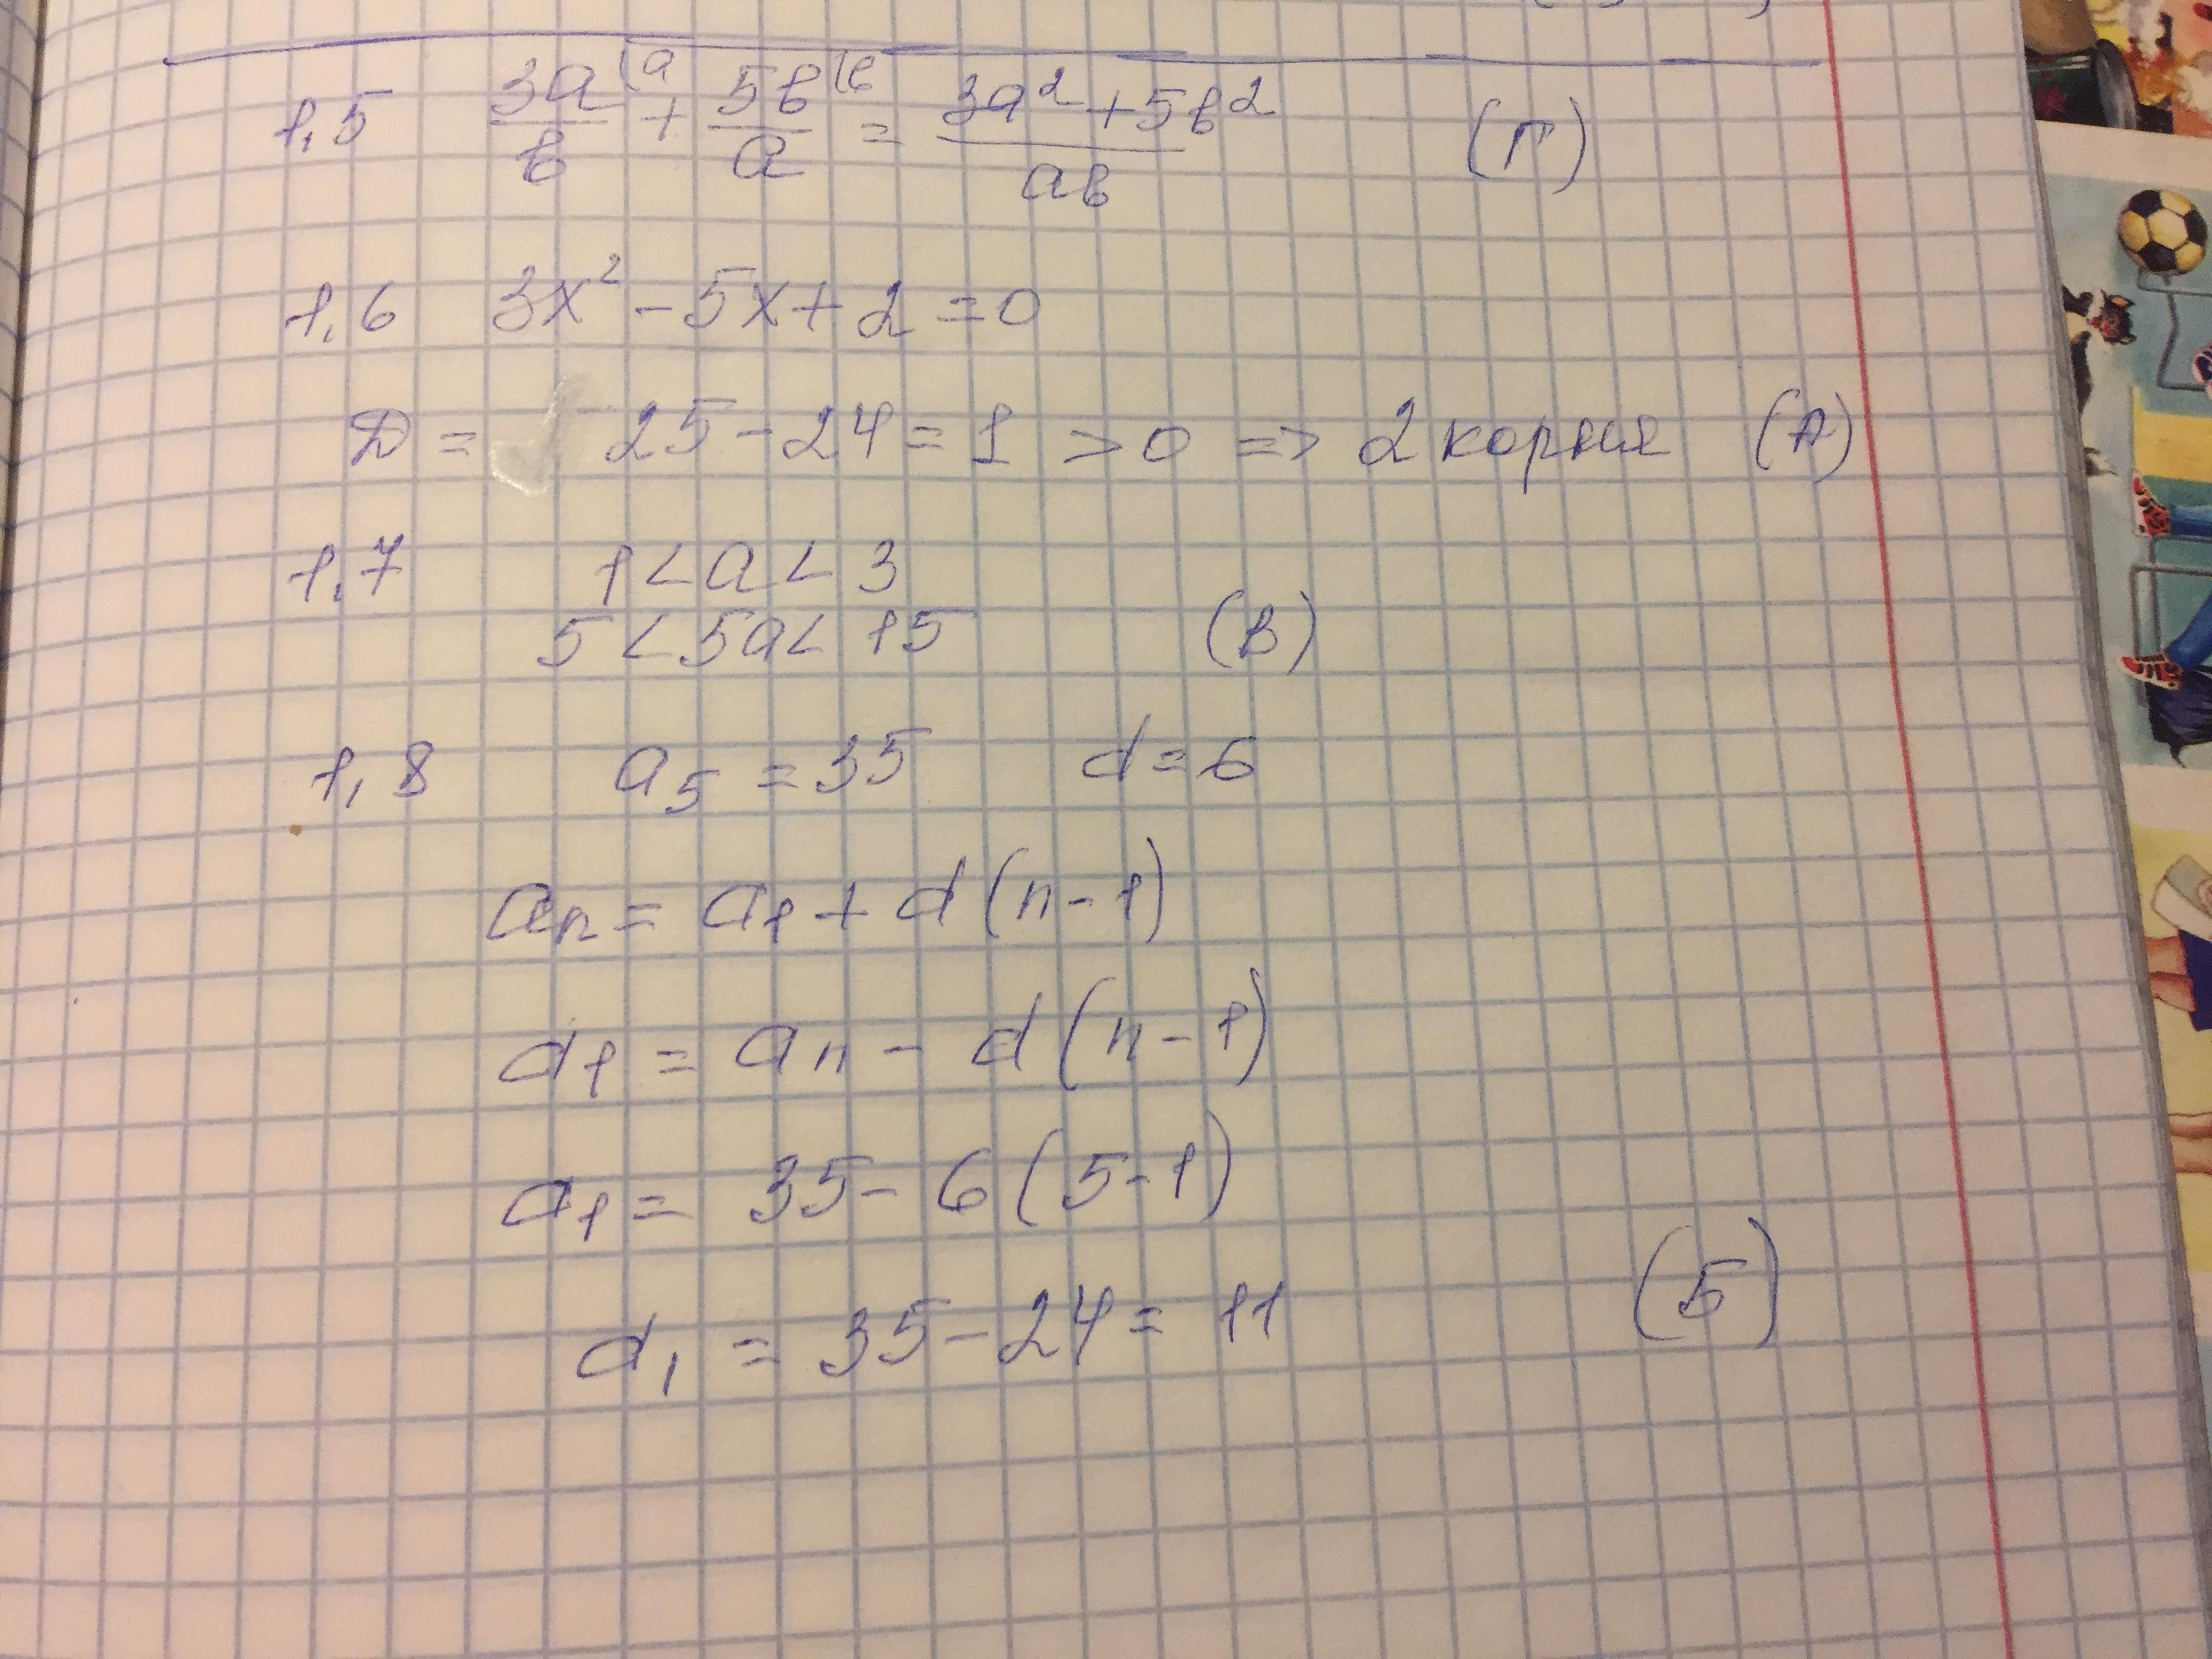 1,5 3a/b (a + 5b/a (b = 3a² + 5b² / ab (Г)
1,6 3x² - 5x + 2 = 0
Д = 25 - 24 = 1 > 0 => 2 корня (А)
1,7 1 < a < 3
5 < 5a < 15 (В)
1,8 a₅ = 35 d = 6
aₙ = a₁ + d(n-1)
a₁ = aₙ - d(n-1)
a₁ = 35 - 6(5-1)
a₁ = 35 - 24 = 11 (Б)